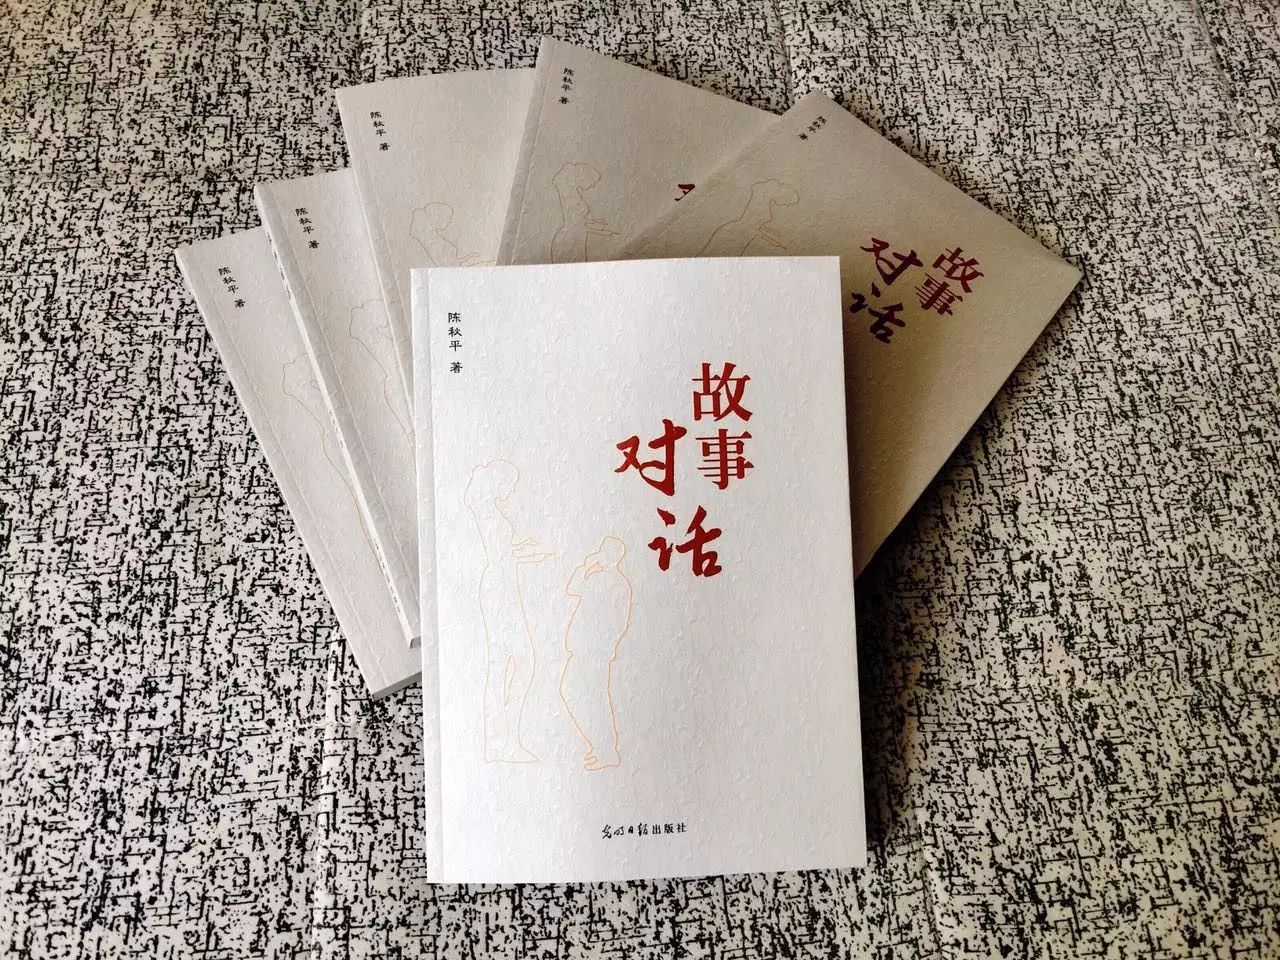 陈秋平 著
故事
对话
光明日报出版社
陈秋平 著
陈秋平 著
陈秋平 著
陈秋平 著
陈秋平 著
故事
对话